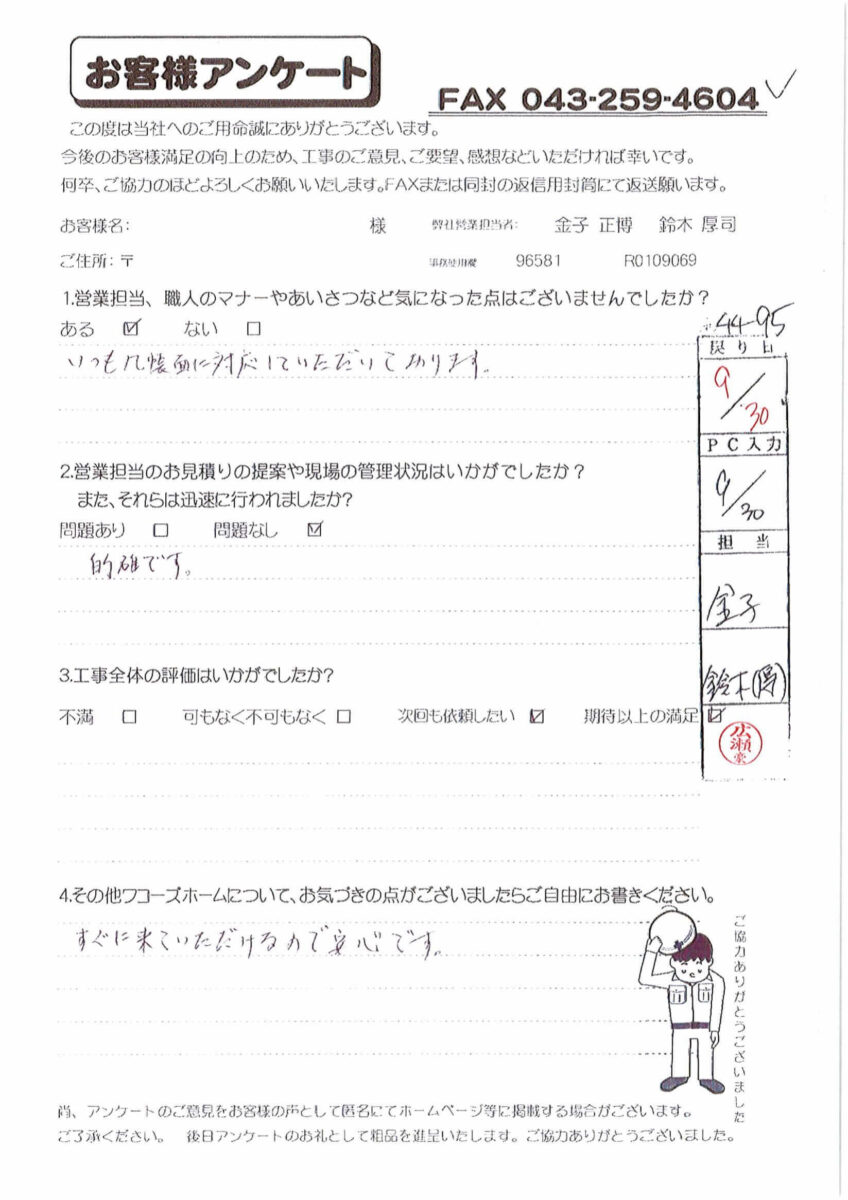 お客様アンケート
FAX 043-259-4604
この度は当社へのご用命誠にありがとうございます。
今後のお客様満足の向上のため、工事のご意見、ご要望、感想などいただければ幸いです。
何卒、ご協力のほどよろしくお願いいたします。FAXまたは同封の返信用封筒にて返送願います。
お客様名: 様 弊社営業担当者: 金子 正博 鈴木 厚司
ご住所:〒 事務使用欄 96581 R0109069
1.営業担当、職人のマナーやあいさつなど気になった点はございませんでしたか?
ある ☑ ない □
いつも几帳面に対応していただいております。
44-95
戻り日
9/30
PC入力
9/30
担当
金子
鈴木(厚)
広瀬
2.営業担当のお見積りの提案や現場の管理状況はいかがでしたか?
また、それらは迅速に行われましたか?
問題あり □ 問題なし ☑
的確です。
3.工事全体の評価はいかがでしたか?
不満 □ 可もなく不可もなく □ 次回も依頼したい ☑ 期待以上の満足 ☑
4.その他ワコーズホームについて、お気づきの点がございましたらご自由にお書きください。
すぐに来ていただけるので安心です。
ご協力ありがとうございました
尚、アンケートのご意見をお客様の声として匿名にてホームページ等に掲載する場合がございます。
ご了承ください。 後日アンケートのお礼として粗品を進呈いたします。ご協力ありがとうございました。